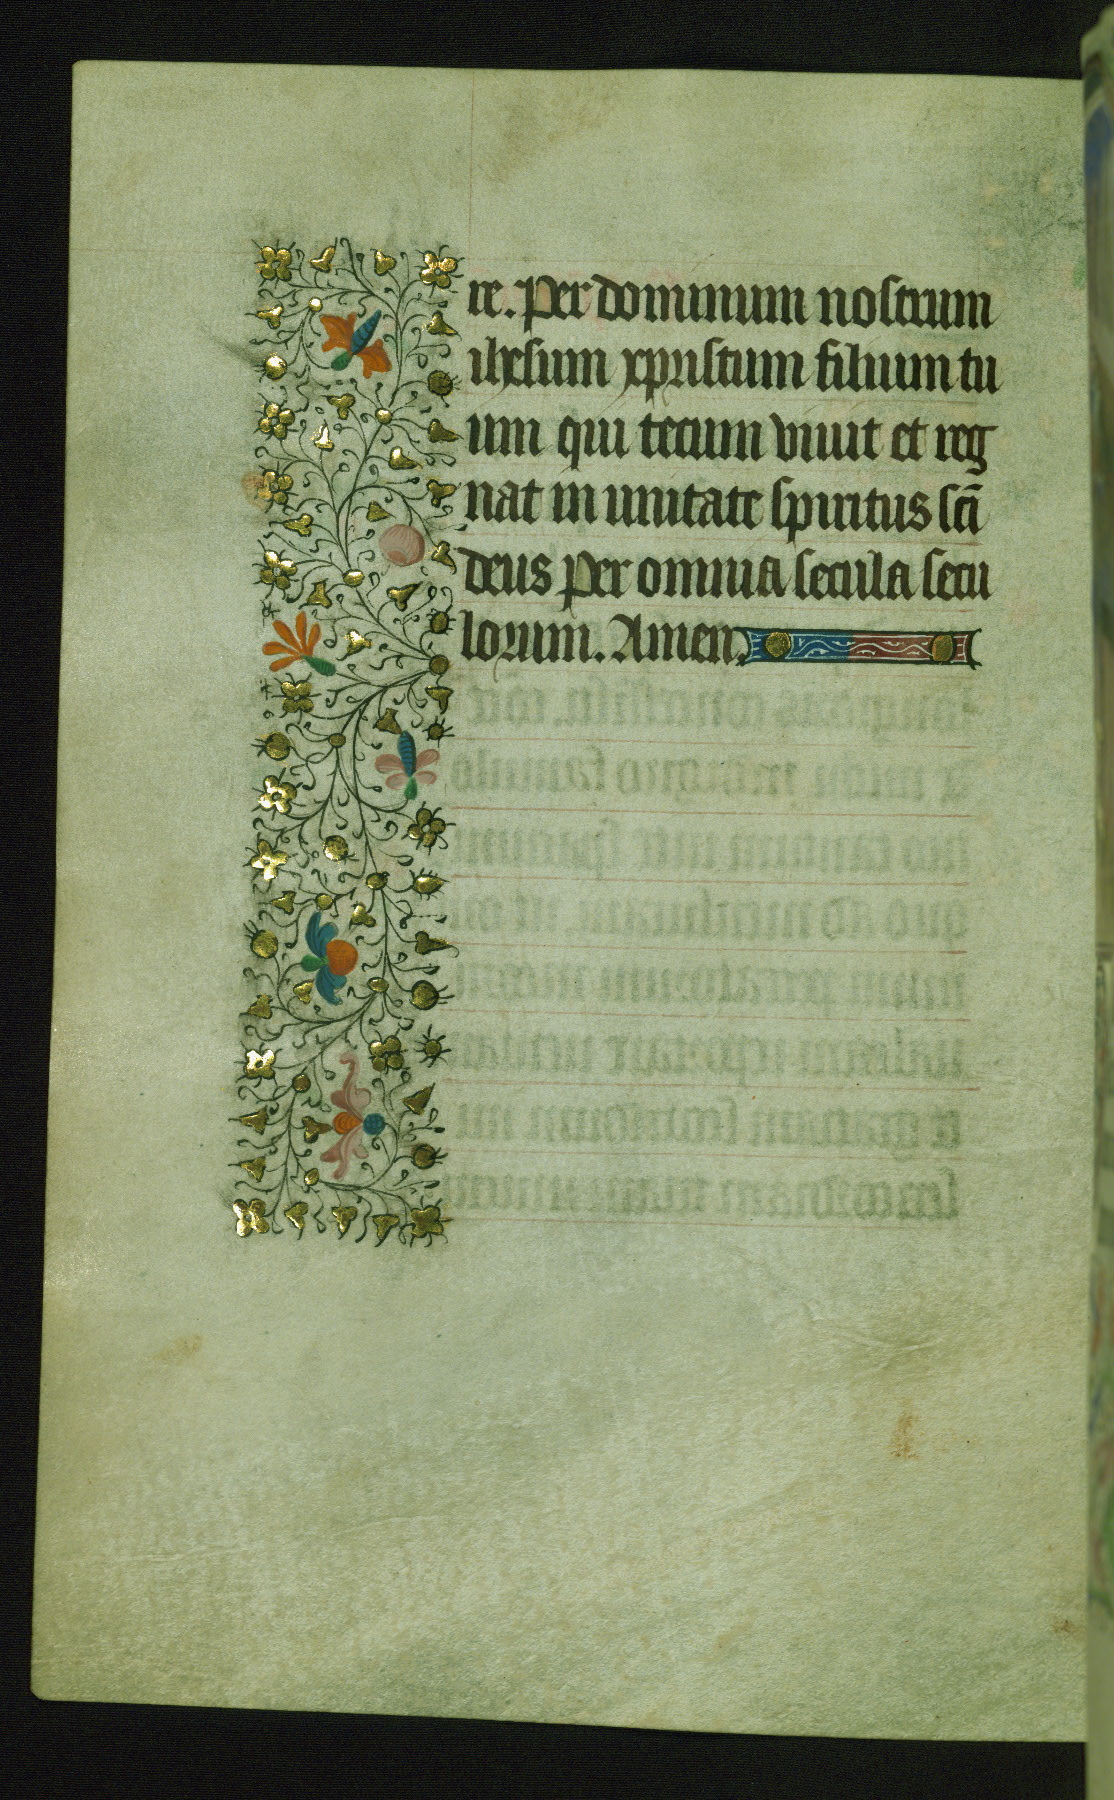 re. Per dominum nostrum
ihesum xpristum filium tu
um qui tecum viuit et reg
nat in unitate spiritus sc̄i
deus per omnia secula secu
lorum. Amen.